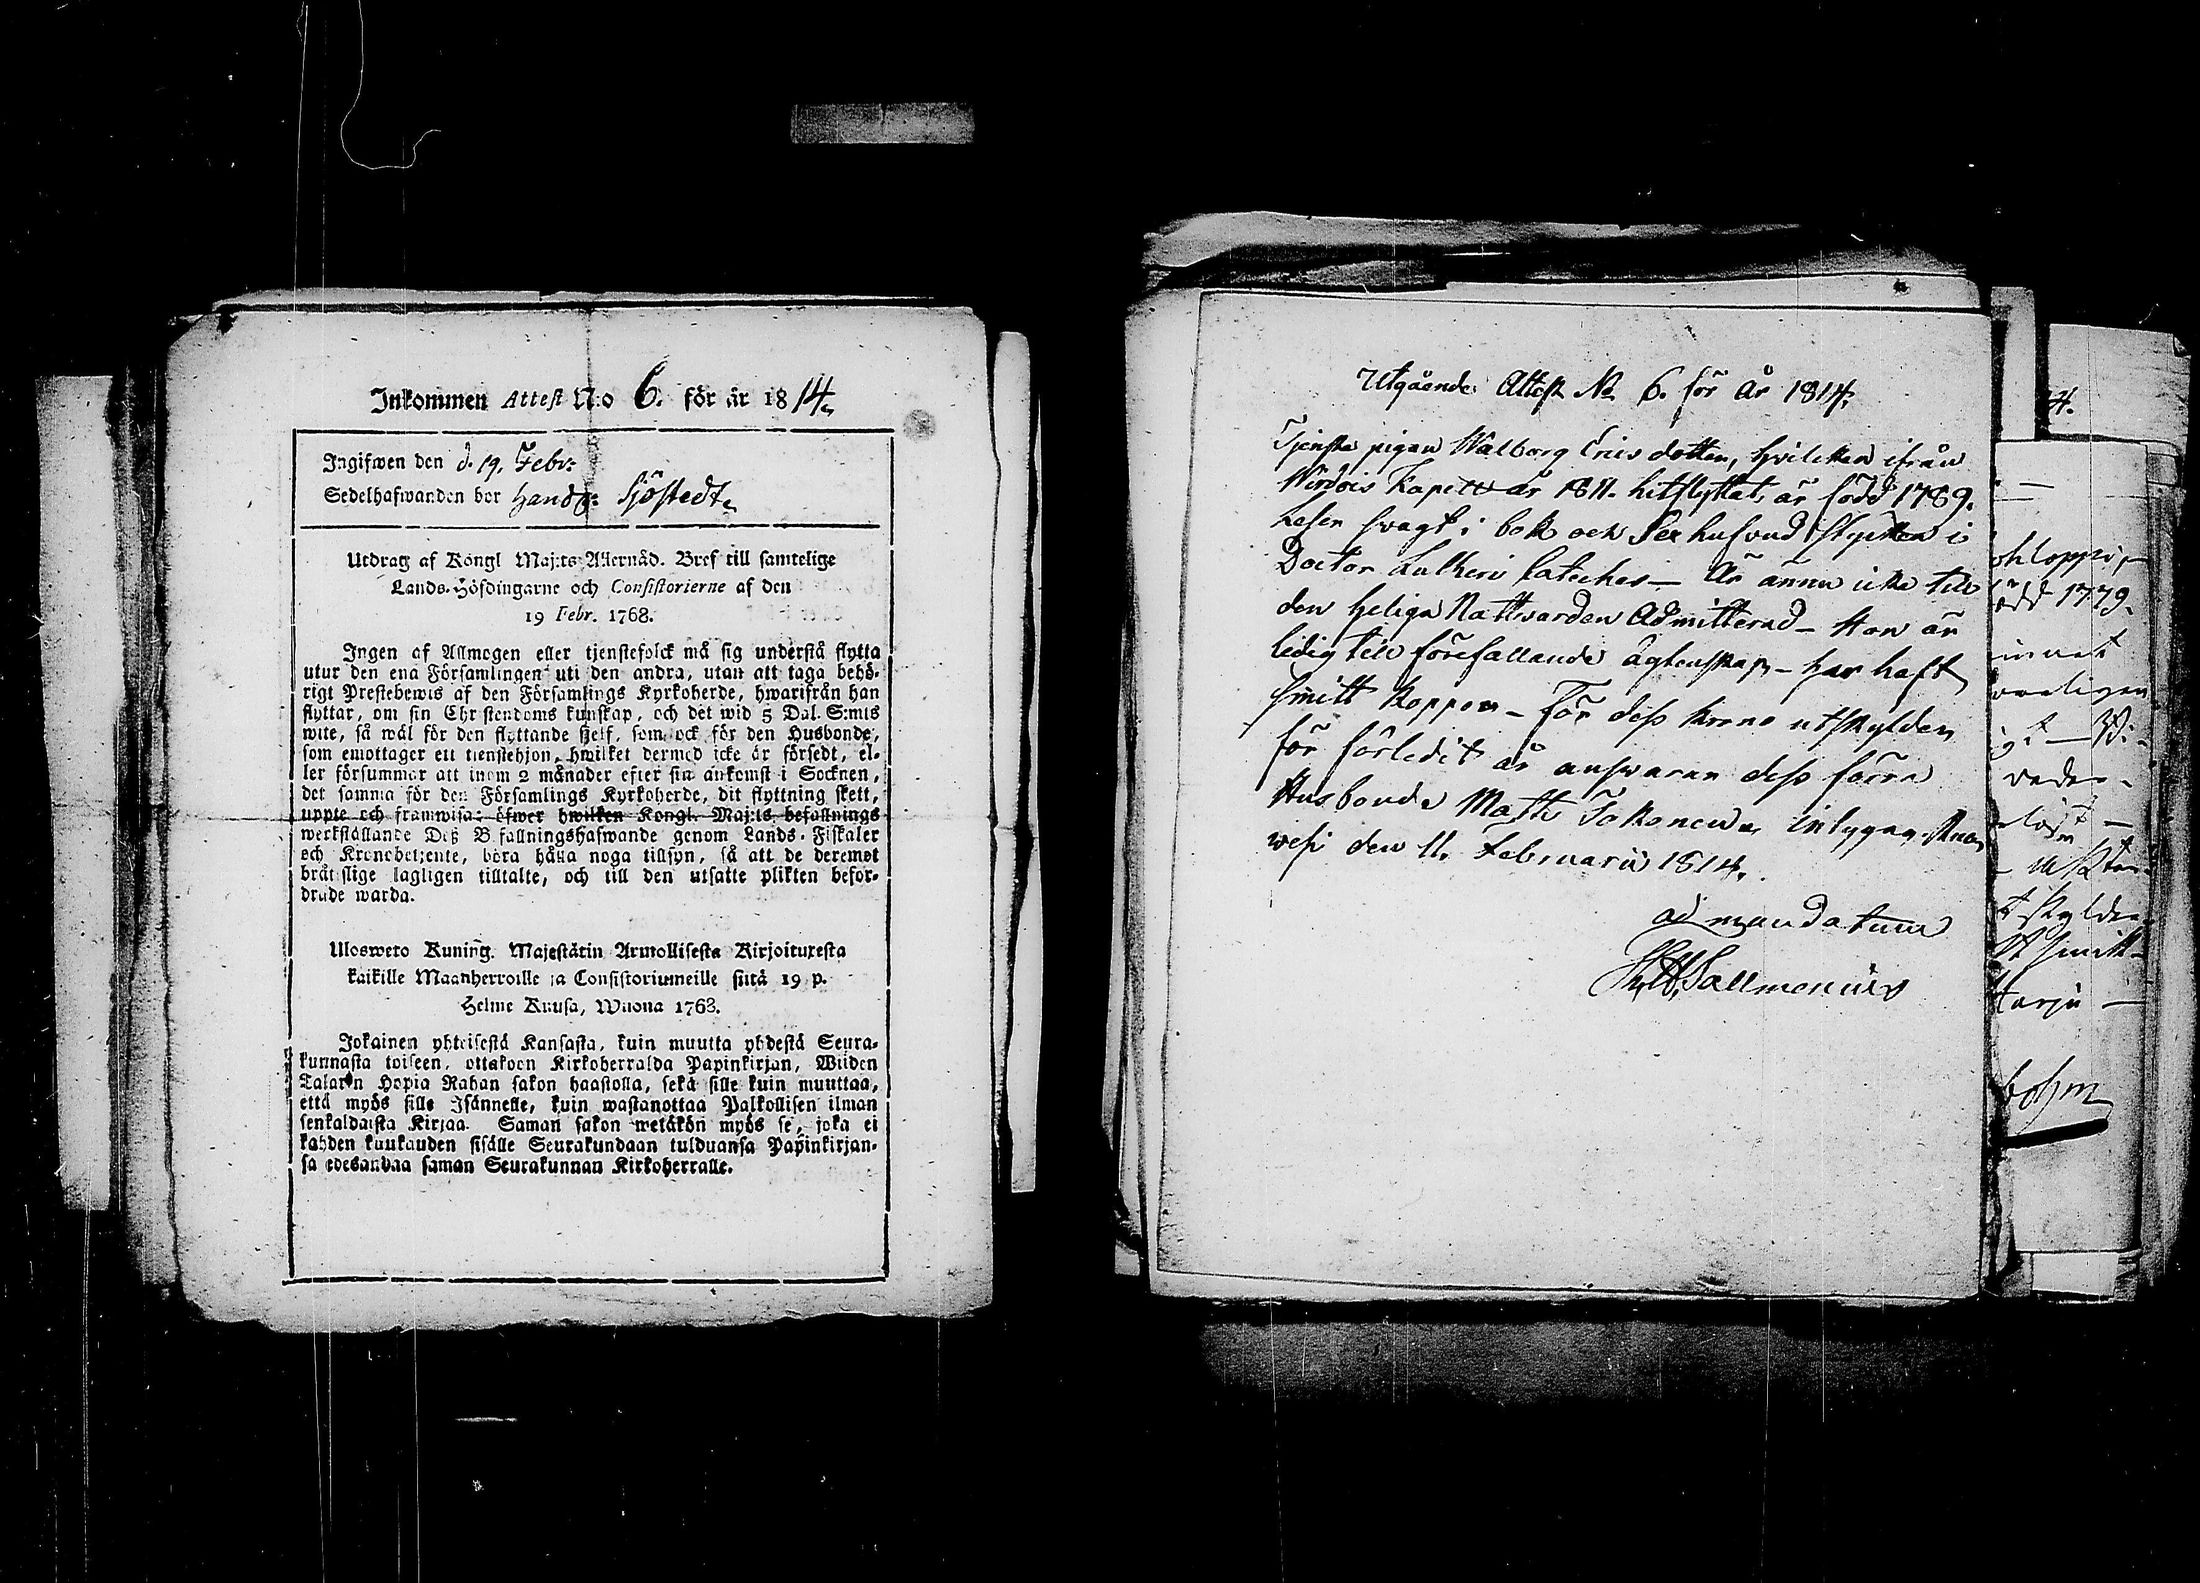 Inkommen Attest N:o 6. för är 1814.
Ingifwen den d. 19. Febr:
Sedelhafwanden bor Handg: Sjöstedt
Utdrag af Kongl Maj:ts Allernåd. Bref till samtelige
Lands-Höfdingarne och Consistorierne af den
19 Febr. 1768.
Ingen af Allmogen eller tjenstefolck må sig understå flytta
utur den ena Församlingen uti den andra, utan att taga behö-
rigt Prestebewis af den Församlings Kyrkoherde, hwarifrån han
flyttar, om sin Christendoms kunskap, och det wid 5 Dal. S:mts
wite, så wäl för den flyttande sjelf, som ock för den Husbonde,
som emottager ett tienstehjon, hwilket dermed icke är försedt, el-
ler försummar att inom 2 månader efter sin ankomst i Socknen,
det samma för den Församlings Kyrkoherde, dit flyttning skett,
uppte och framwisa: öfwer hwilken Kongl. Maj:ts befallnings
werkställande Deß Befallningshafwande genom Lands-Fiskaler
och Kronobetjente, böra hålla noga tillsyn, så att de deremot
brätslige lagligen tilltalte, och till den utsatte plikten befor-
drade warda.
Ulosweto Kuning. Majestätin Armollisesta Kirjoituxesta
kaikille Maanherroille ja Consistoriumeille siitä 19 p.
Helme Kuusa, Wuona 1768.
Jokainen yhteisestä Kansasta, kuin muutta yhdestä Seura-
kunnasta toiseen, ottakoon Kirkoherralda Papinkirjan, Wiiden
Talarin Hopia Rahan sakon haastolla, sekä sille kuin muuttaa,
että myös sille Isännelle, kuin wastanottaa Palkollisen ilman
senkaldaista Kirjaa. Saman sakon wetäkön myös se, joka ei
kahden kuukauden sisälle Seurakundaan tulduansa Papinkirjan-
sa edesanvaa saman Seurakunnan Kirkoherralle.
Utgående Attest No 6. för år 1814.
Tjenste pigan Walborg Ericsdotter, hvilcken ifrån
Wirdois Kapell år 1811. hitflyttat, är född 1789.
Läser svagt i bok och Sex hufvud stycken i
Doctor Lutheri Cateches — Är ännu icke till
den heliga Nattvarden Admitterad — Hon är
ledig till förefallande ägtenskap, — har haft
smitt koppor — För dess krono utskylder
för förledit år answarar dess förra
Husbonde Matts, intygar
den 11. Februarii 1814.
ad mandatum
Sallmenius
4.
ohloppi,
född 1779.
Wi-
Harju —
bohm